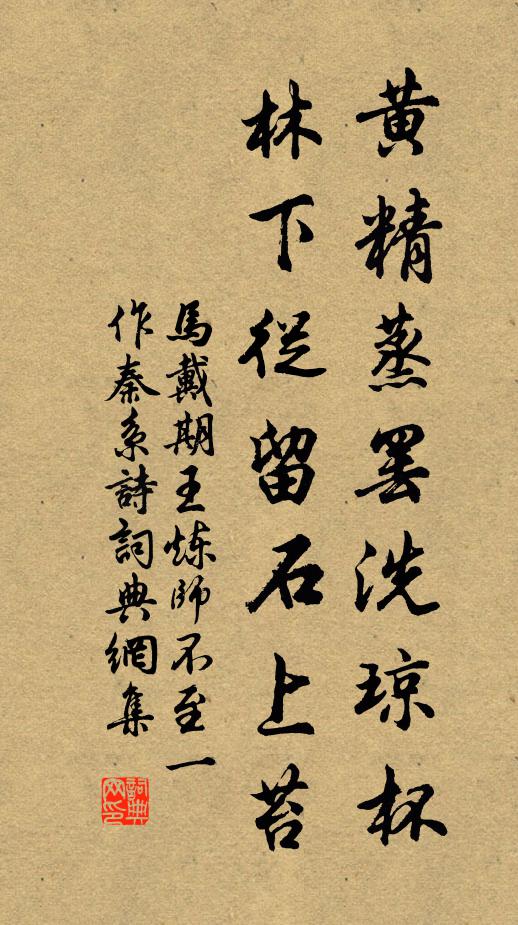 黃精蒸罢洗琼杯
林下從留石上苔
馬戴期王炼師不至一
作秦系詩詞典網集
詞典
网印